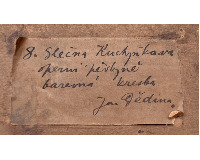 8. Slečna Kuchyňkova
operní pěvkyně
barevná kresba
Jan Dědina